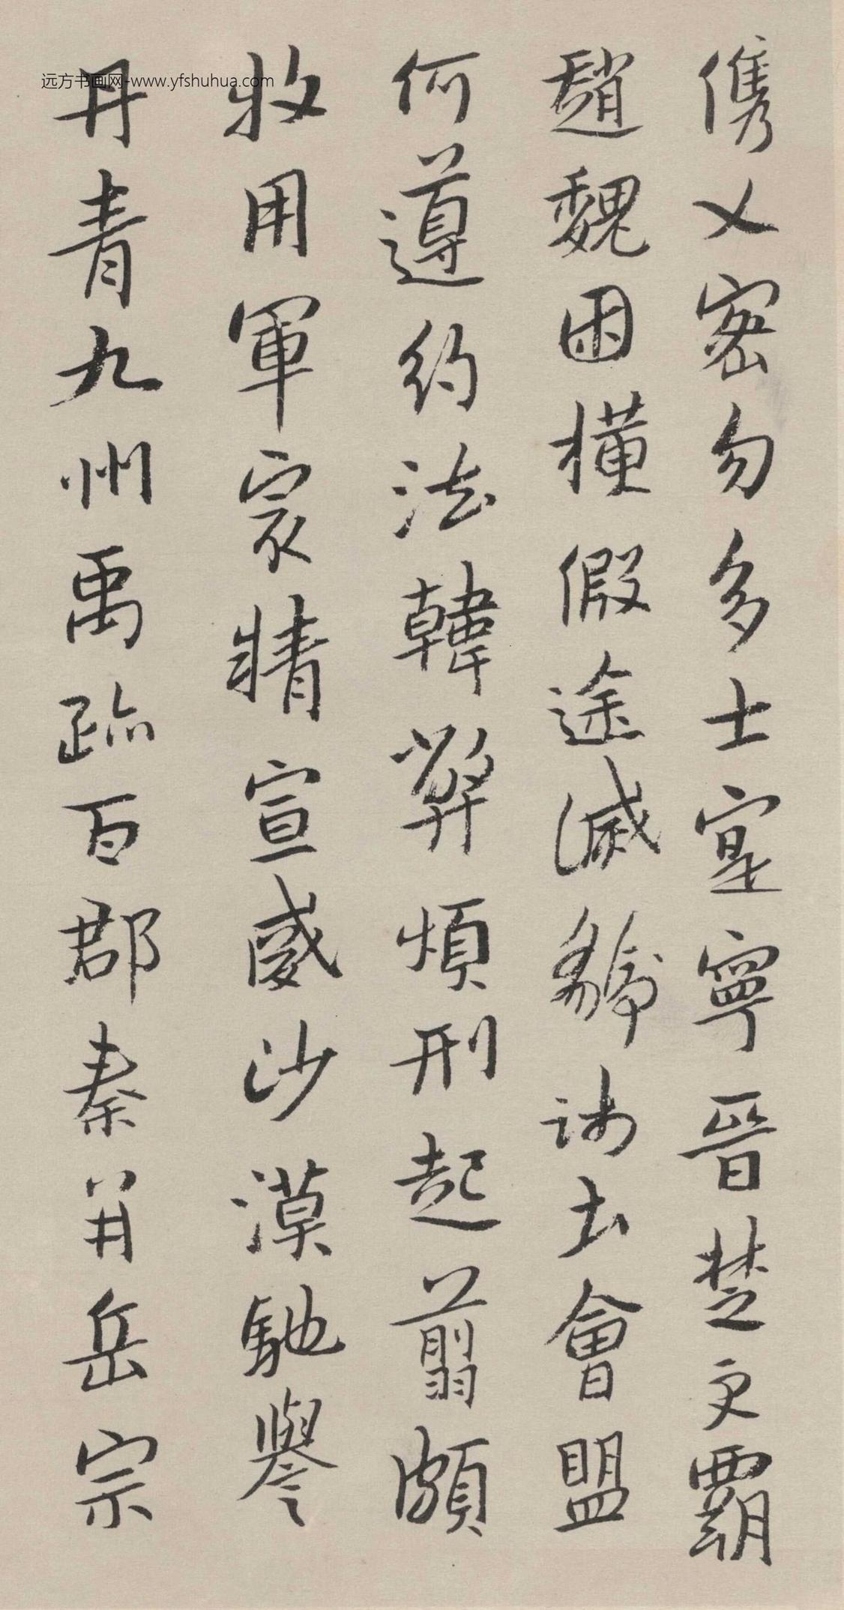 俊乂密勿多士寔寧晉楚更霸
趙魏困橫假途滅虢踐土會盟
何遵約法韓弊煩刑起翦頗
牧用軍宻精宣威沙漠馳譽
丹青九州禹跡百郡秦并岳宗
远方书画网-www.yfshuhua.com